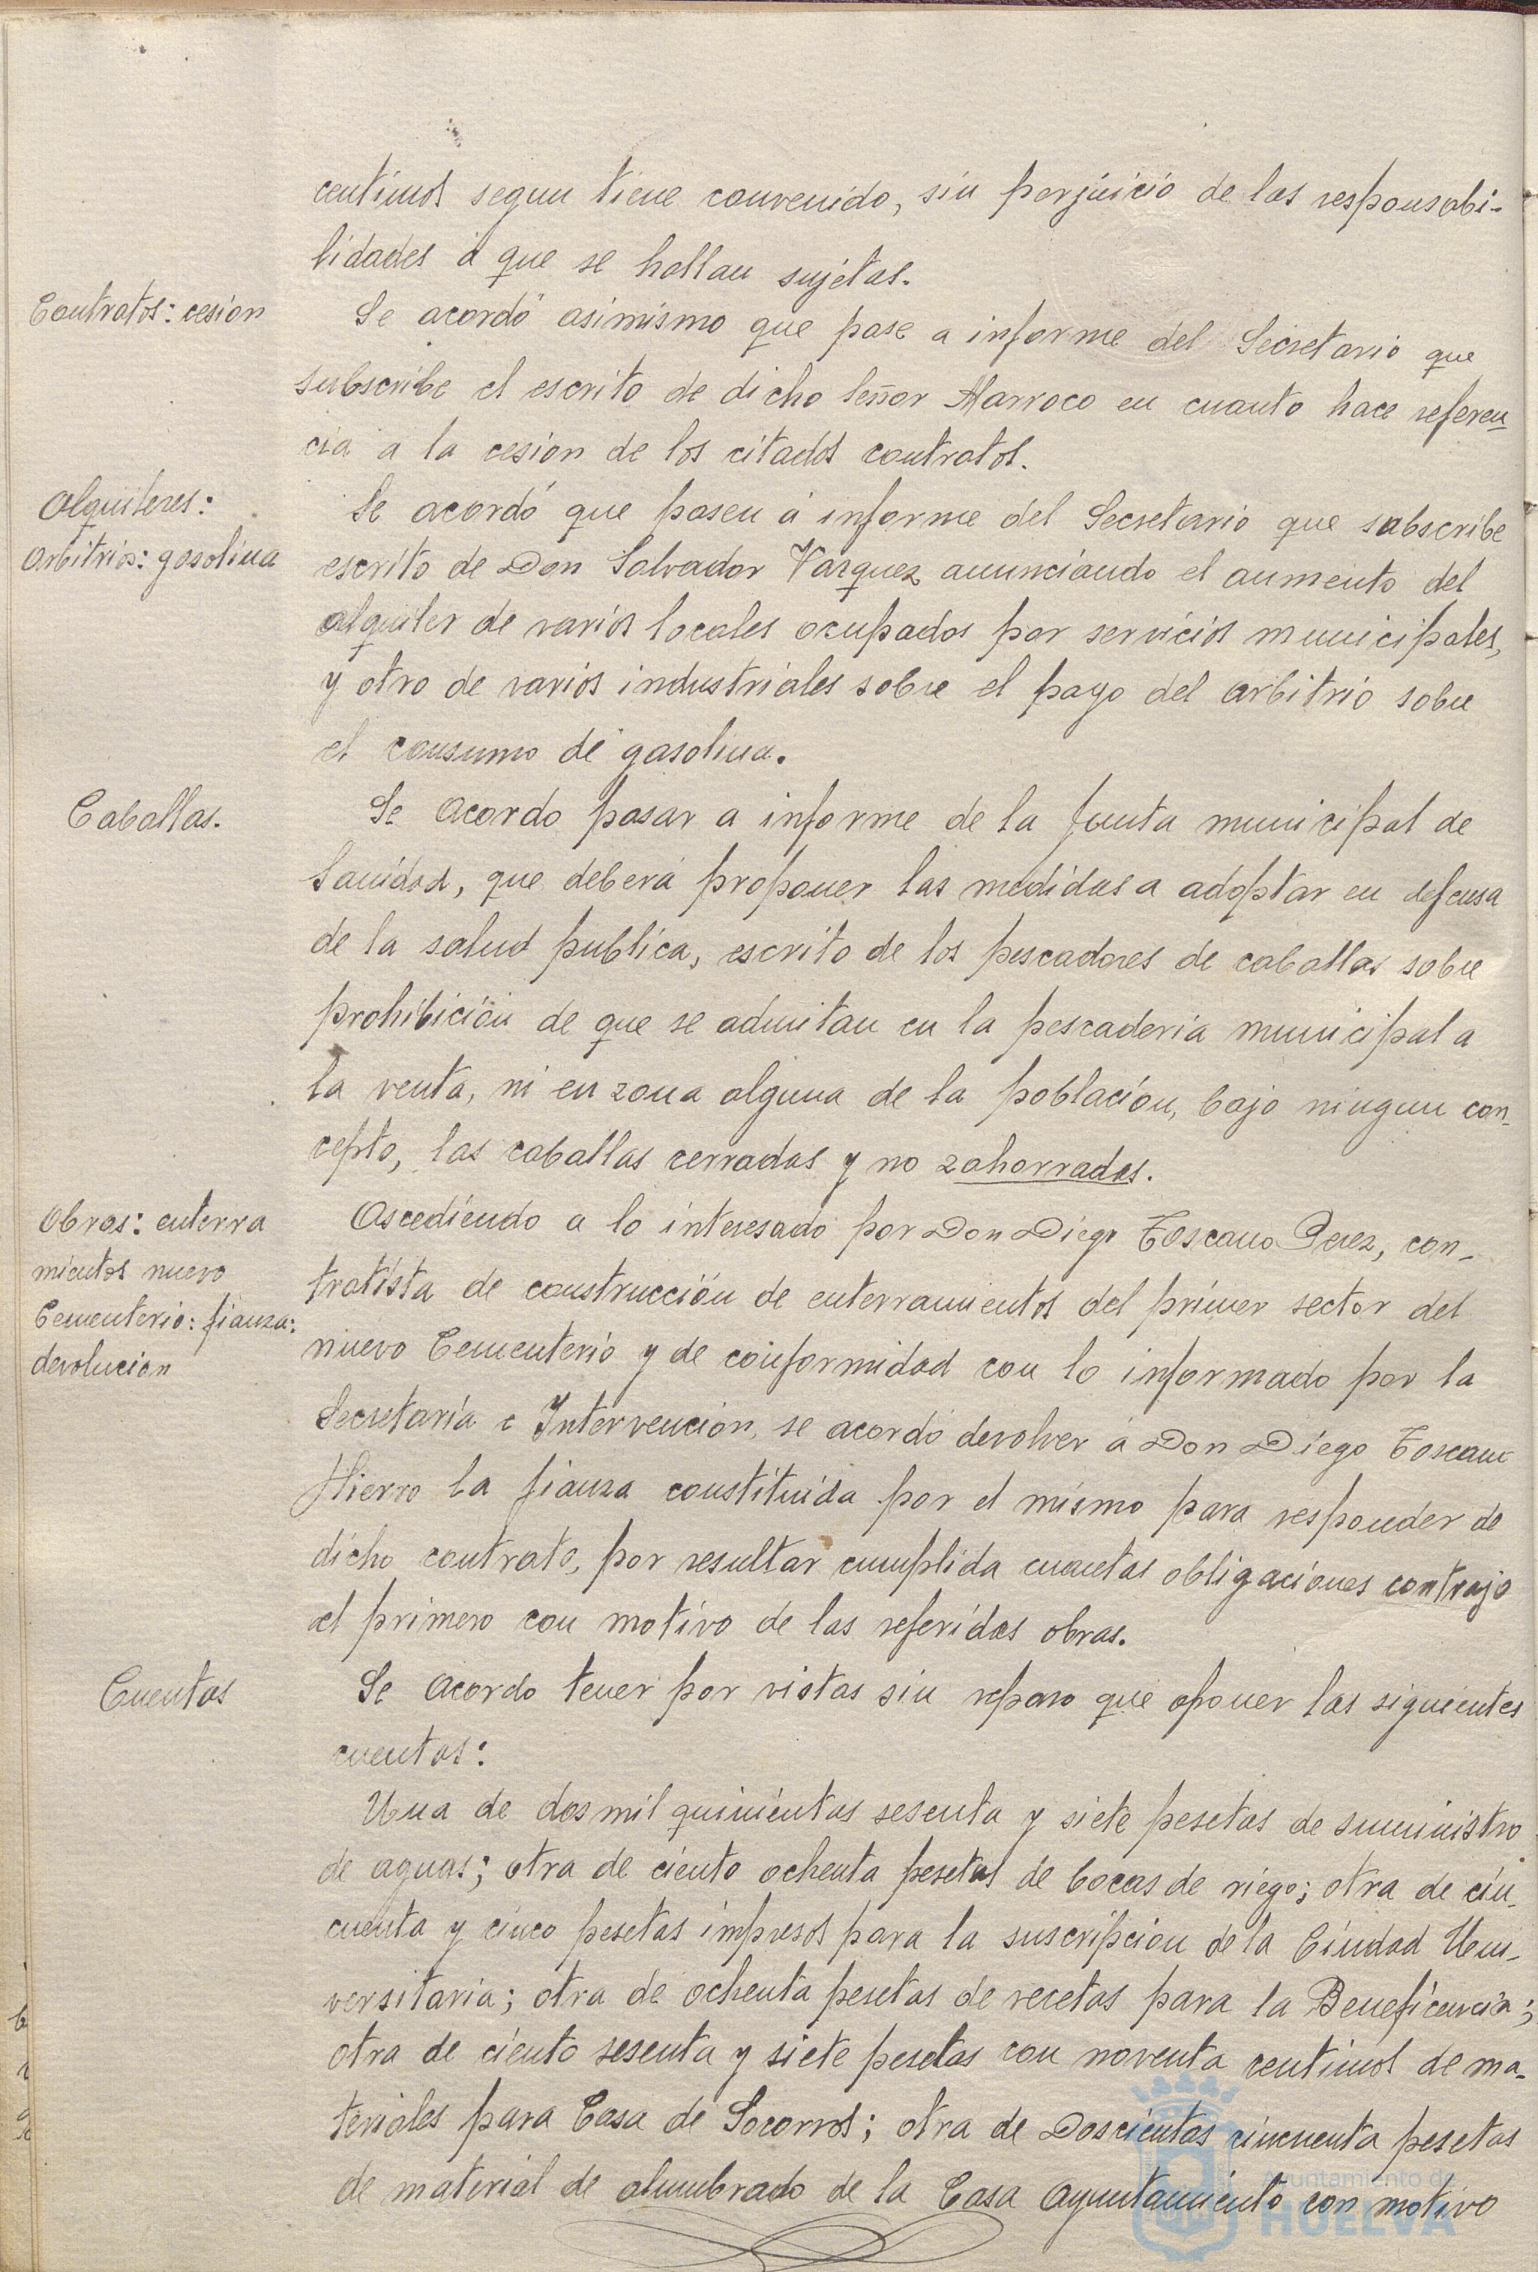 centimos segun tiene convenido, sin perjuicio de las responsabi-
lidades á que se hallan sujetas.
Contratos: cesion
Se acordó asimismo que pase a informe del Secretario que
subscribe el escrito de dicho Señor Marroco en cuanto hace referen
cia a la cesion de los citados contratos.
Alquileres:
Arbitrios: gasolina
Se acordó que pasen á informe del Secretario que subscribe
escrito de Don Salvador Vazquez anunciando el aumento del
alquiler de varios locales ocupados por servicios municipales,
y otro de varios industriales sobre el pago del arbitrio sobre
el consumo de gasolina.
Caballas.
Se acordo pasar a informe de la Junta municipal de
Sanidad, que deberá proponer las medidas a adoptar en defensa
de la salud publica, escrito de los pescadores de caballas sobre
prohibición de que se admitan en la pescaderia municipal a
la venta, ni en zona alguna de la población, bajo ningun con-
cepto, las caballas cerradas y no zahorradas.
Obras: enterra
mientos nuevo
Cementerio: fianza:
devolucion
Accediendo a lo interesado por Don Diego Toscano Perez, con-
tratista de construcción de enterramientos del primer sector del
nuevo Cementerio y de conformidad con lo informado por la
Secretaría e Intervencion, se acordó devolver á Don Diego Toscano
Hierro la fianza constituida por el mismo para responder de
dicho contrato, por resultar cumplida cuantas obligaciones contrajo
el primero con motivo de las referidas obras.
Cuentas
Se acordo tener por vistas sin reparo que oponer las siguientes
cuentas:
Una de dos mil quinientas sesenta y siete pesetas de suministro
de aguas; otra de ciento ochenta pesetas de bocas de riego; otra de cin-
cuenta y cinco pesetas impresos para la suscripcion de la Ciudad Uni-
versitaria; otra de ochenta pesetas de recetas para la Beneficencia;
otra de ciento sesenta y siete pesetas con noventa centimos de ma-
teriales para Casa de Socorros; otra de Doscientas cincuenta pesetas
de material de alumbrado de la Casa Ayuntamiento con motivo
Ayuntamiento de
HUELVA